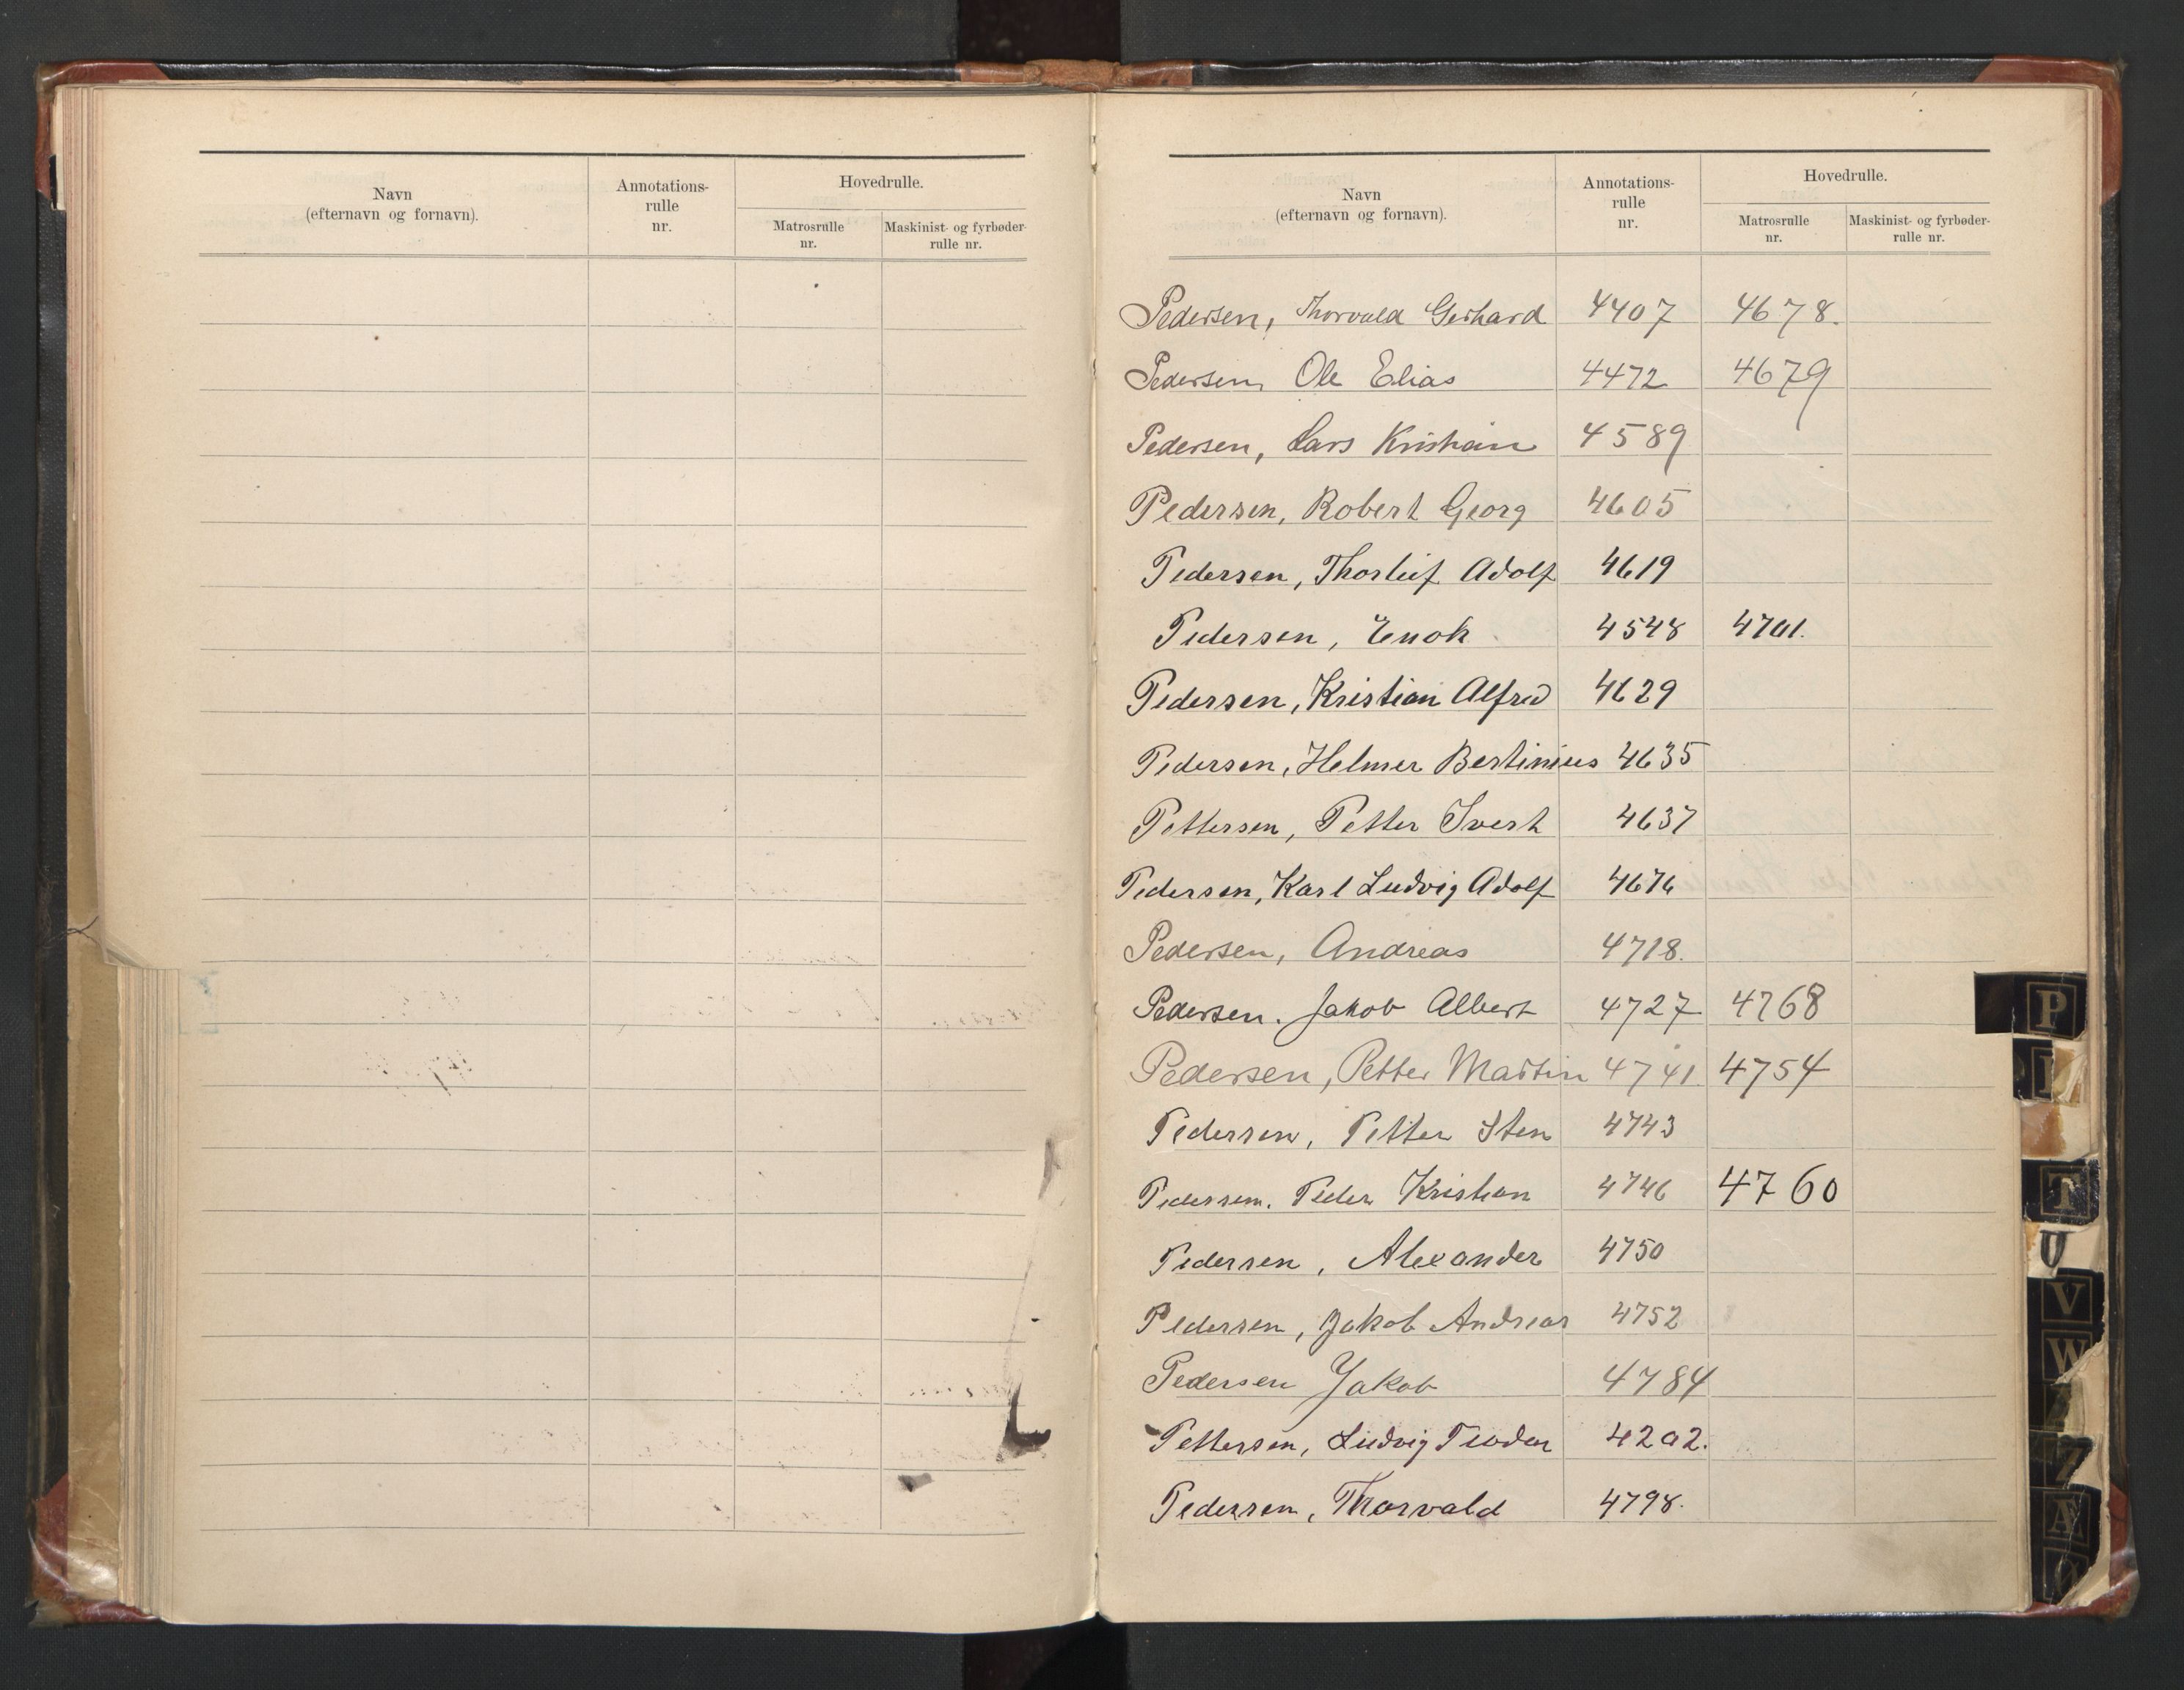 Navn
(efternavn og fornavn).
Annotations-
rulle
nr.
Hovedrulle.
Matrosrulle
nr.
Maskinist- og fyrbøder-
rulle nr.
Navn
(efternavn og fornavn).
Annotations-
rulle
nr.
Hovedrulle.
Matrosrulle
nr.
Maskinist- og fyrbøder-
rulle nr.
Pedersen, Thorvald Gerhard 4407 4678.
Pedersen, Ole Elias 4472 4679
Pedersen, Lars Kristian 4589
Pedersen, Robert Georg 4605
Pedersen, Thorleif Adolf 4619
Pedersen, Enok 4548 4701.
Pedersen, Kristian Alfred 4629
Pedersen, Helmer Bertinius 4635
Pettersen, Petter Ivert 4637
Pedersen, Karl Ludvig Adolf 4676
Pedersen, Andreas 4718.
Pedersen. Jakob Albert 4727 4768
Pedersen, Petter Martin 4741 4754
Pedersen, Petter Sten 4743
Pedersen. Peder Kristian 4746 4760
Pedersen, Alexander 4750
Pedersen, Jakob Andreas 4752
Pedersen Jakob 4784
Pettersen, Ludvig Teodor 4202.
Pedersen, Thorvald 4798.
P
T
U
V
W
Z
Æ